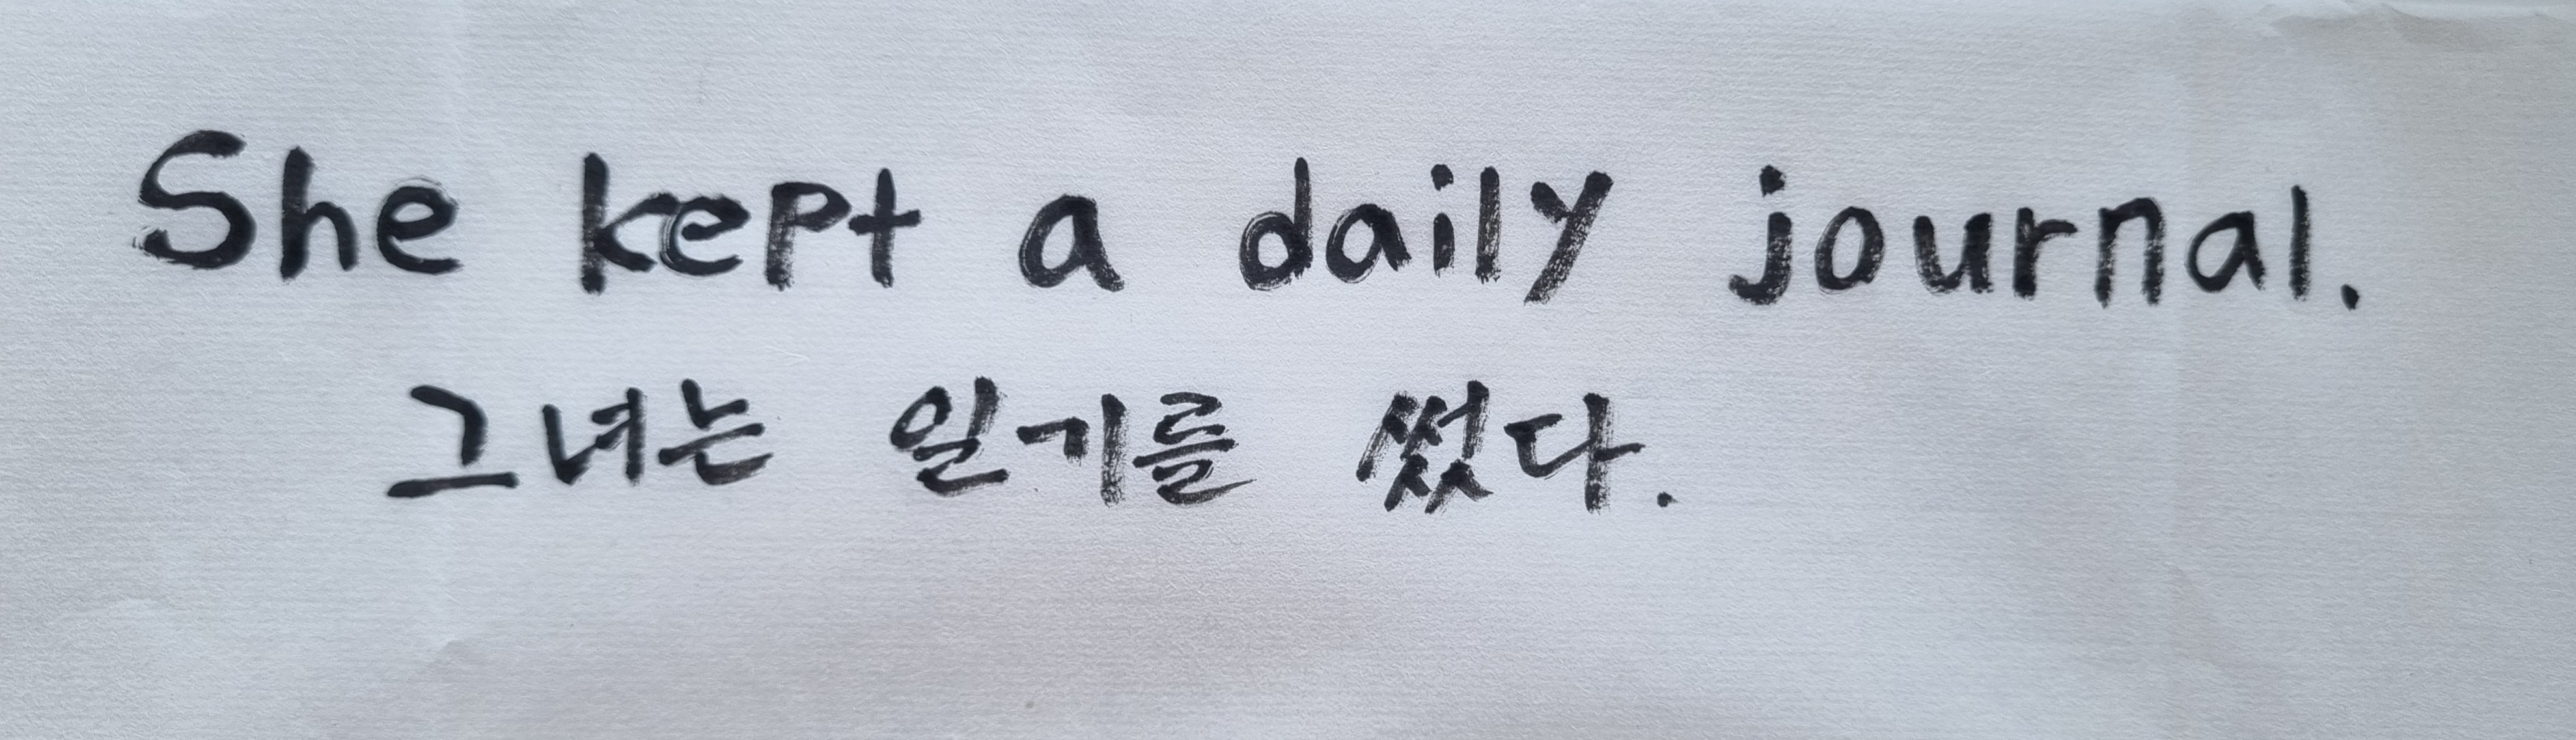 She kept a daily journal.
그녀는 일기를 썼다.